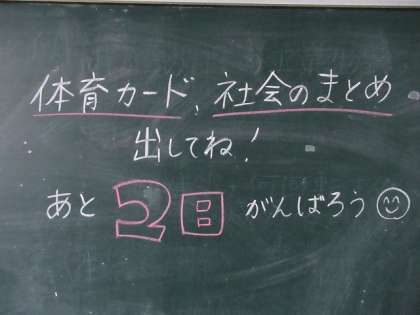 体育カード、社会のまとめ
出してね！
あと2日 がんばろう☺